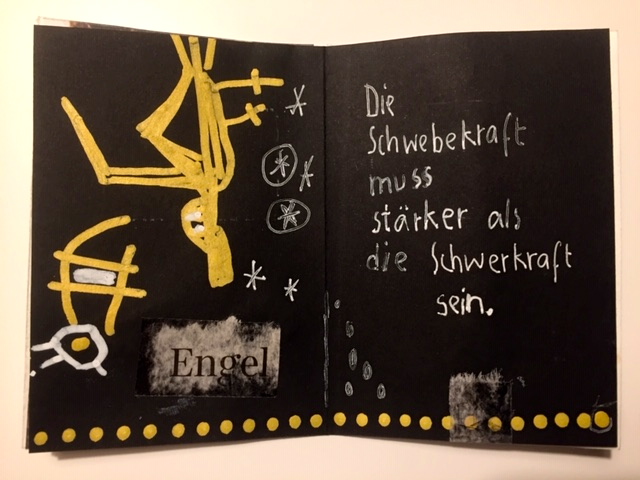 Engel
Die
Schwebekraft
muss
stärker als
die Schwerkraft
sein.